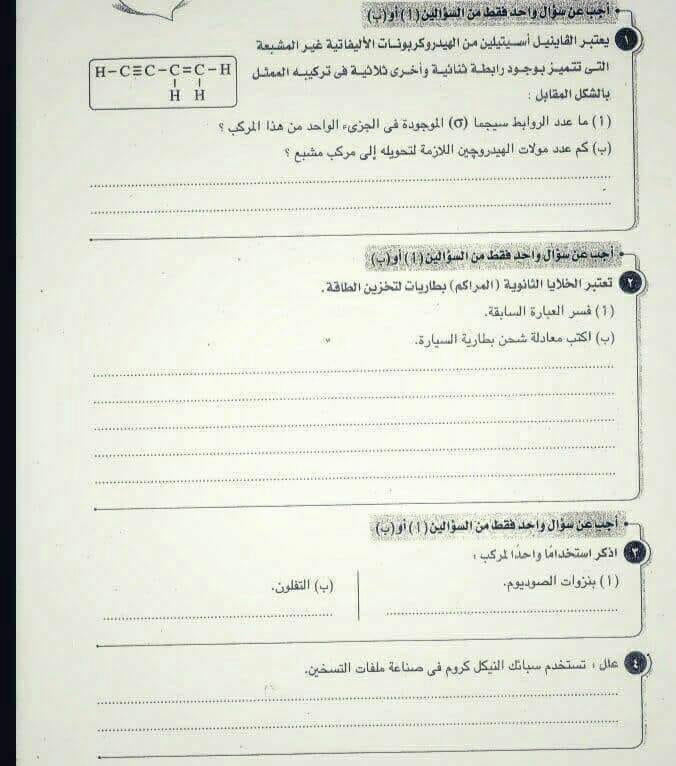 • أجب عن سؤال واحد فقط من السؤالين (أ) أو (ب)
١ يعتبر الڤاينيل أسيتيلين من الهيدروكربونات الأليفاتية غير المشبعة
التى تتميز بوجود رابطة ثنائية وأخرى ثلاثية فى تركيبه الممثل
بالشكل المقابل :
H−C≡C−C=C−H
H H
(أ) ما عدد الروابط سيجما (σ) الموجودة فى الجزىء الواحد من هذا المركب ؟
(ب) كم عدد مولات الهيدروچين اللازمة لتحويله إلى مركب مشبع ؟
• أجب عن سؤال واحد فقط من السؤالين (أ) أو (ب)
٢ تعتبر الخلايا الثانوية (المراكم) بطاريات لتخزين الطاقة.
(أ) فسر العبارة السابقة.
(ب) اكتب معادلة شحن بطارية السيارة.
• أجب عن سؤال واحد فقط من السؤالين (أ) أو (ب)
٣ اذكر استخدامًا واحدًا لمركب :
(أ) بنزوات الصوديوم.
(ب) التفلون.
٤ علل : تستخدم سبائك النيكل كروم فى صناعة ملفات التسخين.